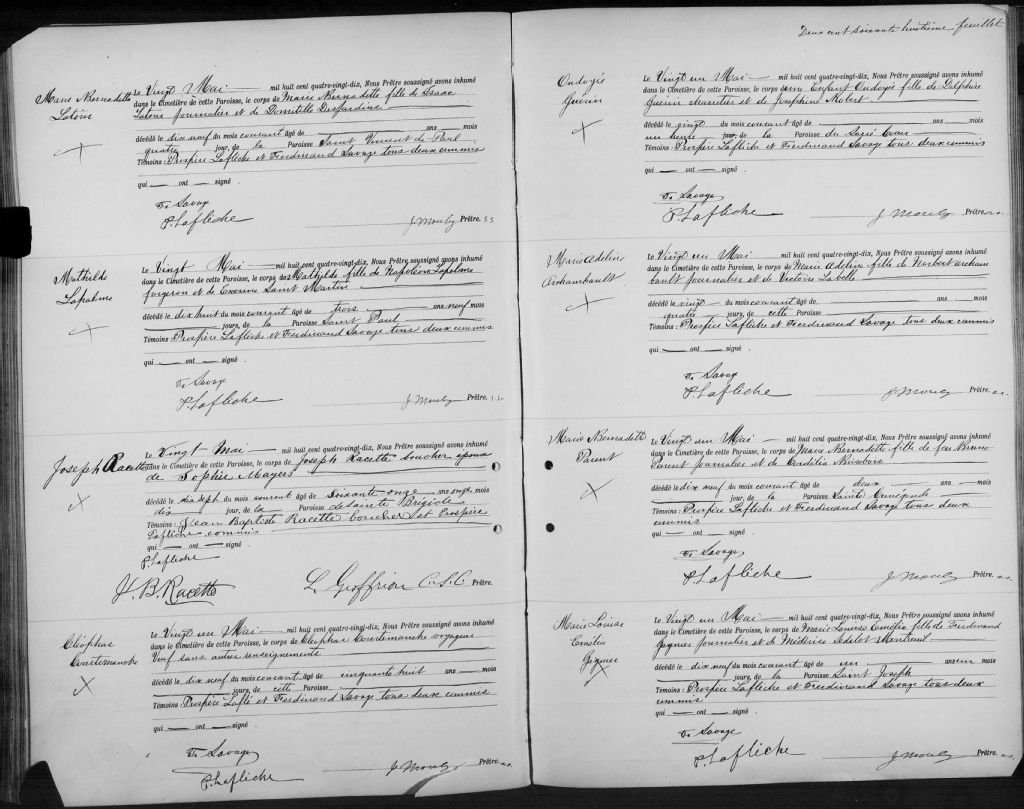 Marie Bernadette
Latour
Le Vingt Mai — mil huit cent quatre-vingt-dix, Nous Prêtre soussigné avons inhumé
dans le Cimetière de cette Paroisse, le corps de Marie Bernadette fille de Isaac
Latour journalier et de Domitille Desjardins
décédé le dix neuf du mois courant âgé de — ans — mois
quatre jours, de la Paroisse Saint Vincent de Paul
Témoins : Prospère Laflèche et Ferdinand Savage tous deux commis
qui — ont — signé .
F. Savage
P. Laflèche
J. Mouly Prêtre.
Mathilde
Lapalme
Le Vingt Mai — mil huit cent quatre-vingt-dix, Nous Prêtre soussigné avons inhumé
dans le Cimetière de cette Paroisse, le corps de Mathilde fille de Napoléon Lapalme
forgeron et de Exerine Saint Martin
décédé le dix huit du mois courant âgé de trois ans neuf mois
— jours, de la Paroisse Saint Paul
Témoins : Prospère Laflèche et Ferdinand Savage tous deux commis
qui — ont — signé .
F. Savage
P. Laflèche
J. Mouly Prêtre.
Joseph Racette
Le Vingt Mai — mil huit cent quatre-vingt-dix, Nous Prêtre soussigné avons inhumé
dans le Cimetière de cette Paroisse, le corps de Joseph Racette boucher époux
de Sophie Mayer
décédé le dix sept du mois courant âgé de soixante onze ans onze mois
dix jour, de la Paroisse de Sainte Brigide
Témoins : Jean Baptiste Racette boucher et Prospère
Laflèche commis
qui — ont — signé .
P. Laflèche
J. B. Racette
L. Geoffrion C.S.C. Prêtre.
Cléophas
Courtemanche
Le Vingt un Mai — mil huit cent quatre-vingt-dix, Nous Prêtre soussigné avons inhumé
dans le Cimetière de cette Paroisse, le corps de Cléophas Courtemanche voyageur
Veuf sans autre renseignements
décédé le dix neuf du mois courant âgé de cinquante huit ans — mois
— jours, de cette Paroisse
Témoins : Prospère Laflè et Ferdinand Savage tous deux commis
qui — ont — signé .
F. Savage
P. Laflèche
J. Mouly Prêtre.
Deux cent soixante huitième feuillet
Ondoyée
Guérin
Le Vingt un Mai — mil huit cent quatre-vingt-dix, Nous Prêtre soussigné avons inhumé
dans le Cimetière de cette Paroisse, le corps de un Enfant Ondoyé fille de Delphire
Guérin charretier et de Joséphine Robert
décédé le vingt du mois courant âgé de — ans — mois
un heure jour, de la Paroisse du Sacré Coeur
Témoins : Prospère Laflèche et Ferdinand Savage tous deux commis
qui — ont — signé .
F. Savage
P. Laflèche
J. Mouly Prêtre.
Marie Adeline
Archambault
Le Vingt un Mai — mil huit cent quatre-vingt-dix, Nous Prêtre soussigné avons inhumé
dans le Cimetière de cette Paroisse, le corps de Marie Adeline fille de Norbert Archam
bault journalier et de Victoire Labelle
décédé le vingt du mois courant âgé de — ans — mois
quatre jours, de cette Paroisse
Témoins : Prospère Laflèche et Ferdinand Savage tous deux commis
qui — ont — signé .
F. Savage
P. Laflèche
J. Mouly Prêtre.
Marie Bernadette
Parent
Le Vingt un Mai — mil huit cent quatre-vingt-dix, Nous Prêtre soussigné avons inhumé
dans le Cimetière de cette Paroisse, le corps de Marie Bernadette fille de feu Bruno
Parent journalier et de Cordélia
décédé le dix neuf du mois courant âgé de deux ans — mois
— jour, de la Paroisse Sainte Cunégonde
Témoins : Prospère Laflèche et Ferdinand Savage tous deux
commis
qui — ont — signé .
F. Savage
P. Laflèche
J. Mouly Prêtre.
Marie Louise
Emélia
Gagner
Le Vingt un Mai — mil huit cent quatre-vingt-dix, Nous Prêtre soussigné avons inhumé
dans le Cimetière de cette Paroisse, le corps de Marie Louise Emélia fille de Ferdinand
Gagner journalier et de Médérise
décédé le dix neuf du mois courant âgé de un an un mois
— jours, de la Paroisse Saint Joseph
Témoins : Prospère Laflèche et Ferdinand Savage tous deux
commis
qui — ont — signé .
F. Savage
P. Laflèche
J. Mouly Prêtre.